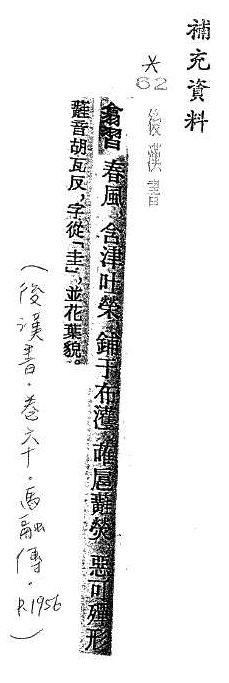 補充資料
*
62 後漢書
翕習春風,含津吐榮,鋪于布濩,蓶扈蘳熒,惡可殫形
蘳音胡瓦反,字從「圭」,並花葉貌。
(後漢書.卷六十.馬融傳.P.1956)